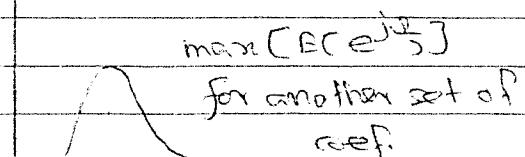 max [E(e^{jΩ})]
for another set of
coef.